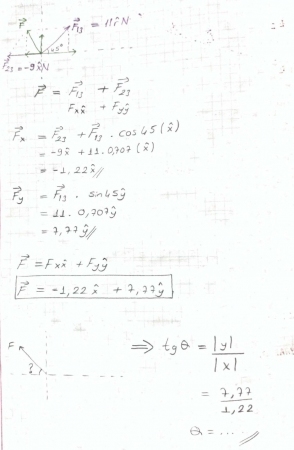 F⃗ F⃗₁₃ = 11 N
45°
F⃗₂₃ = -9x̂N
F⃗ = F⃗₁₃ + F⃗₂₃
Fxx̂ + Fyŷ
F⃗x = F⃗₂₃ + F⃗₁₃ . cos45 (x̂)
= -9x̂ + 11.0,707 (x̂)
= -1,22x̂//
F⃗y = F⃗₁₃ . sin45ŷ
= 11. 0,707ŷ
= 7,77ŷ//
F⃗ = Fxx̂ + Fyŷ
F⃗ = -1,22 x̂ + 7,77ŷ
F
?
⇒ tgθ = |y| / |x|
= 7,77 / 1,22
θ = .... //